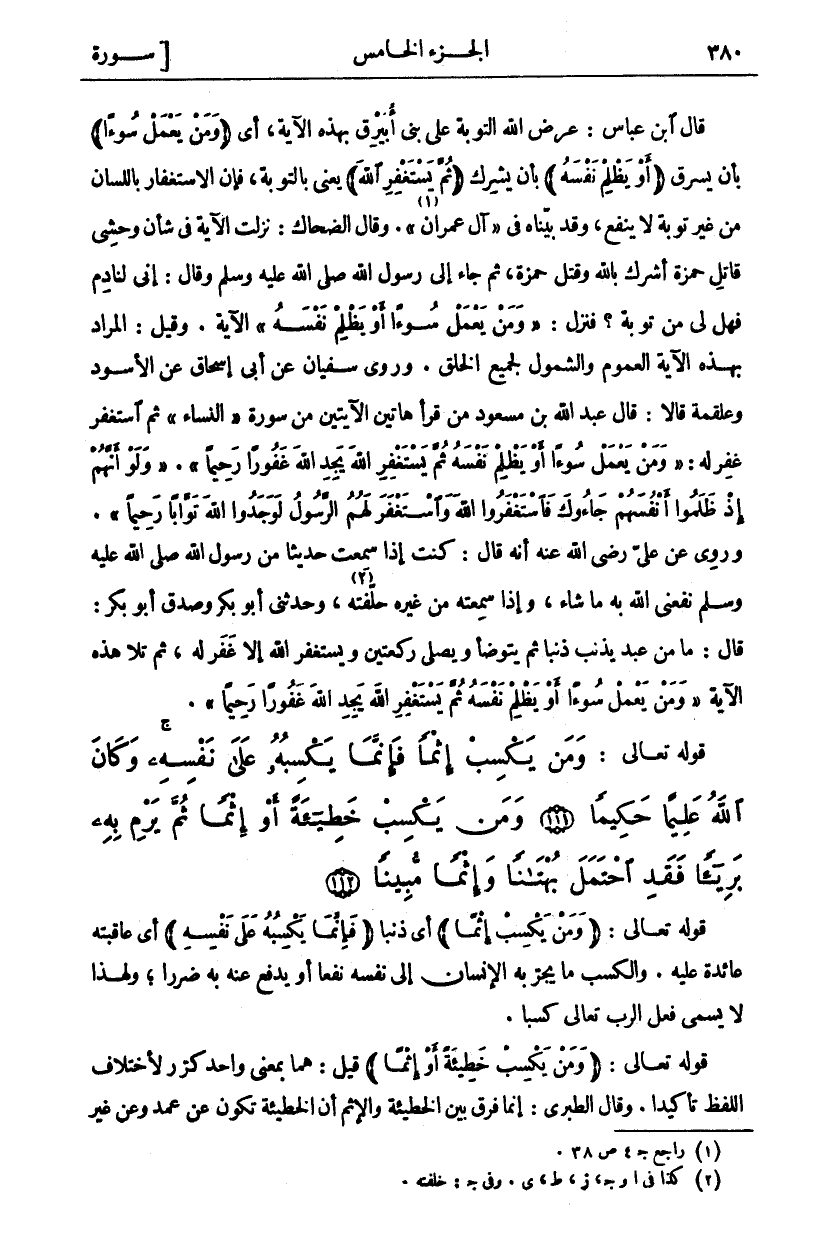 ٣٨٠ الجزء الخامس [ سورة
قال ٱبن عباس : عرض الله التوبة على بنى أُبَيْرِق بهذه الآية، أى ﴿وَمَنْ يَعْمَلْ سُوءًا﴾
بأن يسرق ﴿أَوْ يَظْلِمْ نَفْسَهُ﴾ بأن يشرك ﴿ثُمَّ يَسْتَغْفِرِ ٱللَّهَ﴾ يعنى بالتوبة، فإن الاستغفار باللسان
من غير توبة لا ينفع، وقد بيّناه فى «آل عمران»(١). وقال الضحاك : نزلت الآية فى شأن وحشى
قاتل حمزة أشرك بالله وقتل حمزة، ثم جاء إلى رسول الله صلى الله عليه وسلم وقال : إنى لنادم
فهل لى من توبة ؟ فنزل : « وَمَنْ يَعْمَلْ سُوءًا أَوْ يَظْلِمْ نَفْسَهُ » الآية . وقيل : المراد
بهذه الآية العموم والشمول لجميع الخلق . وروى سفيان عن أبى إسحاق عن الأسود
وعلقمة قالا : قال عبد الله بن مسعود من قرأ هاتين الآيتين من سورة « النساء » ثم ٱستغفر
غفر له : « وَمَنْ يَعْمَلْ سُوءًا أَوْ يَظْلِمْ نَفْسَهُ ثُمَّ يَسْتَغْفِرِ اللهَ يَجِدِ اللهَ غَفُورًا رَحِيمًا » . « وَلَوْ أَنَّهُمْ
إِذْ ظَلَمُوا أَنْفُسَهُمْ جَاءُوكَ فَٱسْتَغْفَرُوا اللهَ وَٱسْتَغْفَرَ لَهُمُ الرَّسُولُ لَوَجَدُوا اللهَ تَوَّابًا رَحِيمًا » .
وروى عن علىّ رضى الله عنه أنه قال : كنت إذا سمعت حديثا من رسول الله صلى الله عليه
وسلم نفعنى الله به ما شاء ، وإذا سمعته من غيره حلّفته(٢) ، وحدثنى أبو بكر وصدق أبو بكر :
قال : ما من عبد يذنب ذنبا ثم يتوضأ ويصلى ركعتين ويستغفر الله إلا غَفَر له ، ثم تلا هذه
الآية « وَمَنْ يَعْمَلْ سُوءًا أَوْ يَظْلِمْ نَفْسَهُ ثُمَّ يَسْتَغْفِرِ اللهَ يَجِدِ اللهَ غَفُورًا رَحِيمًا » .
قوله تعالى : وَمَن يَكْسِبْ إِثْمًا فَإِنَّمَا يَكْسِبُهُۥ عَلَىٰ نَفْسِهِۦۚ وَكَانَ
ٱللَّهُ عَلِيمًا حَكِيمًا ﴿١١١﴾ وَمَن يَكْسِبْ خَطِيٓـَٔةً أَوْ إِثْمًا ثُمَّ يَرْمِ بِهِۦ
بَرِيٓـًٔا فَقَدِ ٱحْتَمَلَ بُهْتَـٰنًا وَإِثْمًا مُّبِينًا ﴿١١٢﴾
قوله تعالى : ﴿ وَمَنْ يَكْسِبْ إِثْمًا ﴾ أى ذنبا ﴿ فَإِنَّمَا يَكْسِبُهُ عَلَى نَفْسِهِ ﴾ أى عاقبته
عائدة عليه . والكسب ما يجرّ به الإنسان إلى نفسه نفعا أو يدفع عنه به ضررا ؛ ولهذا
لا يسمى فعل الرب تعالى كسبا .
قوله تعالى : ﴿ وَمَنْ يَكْسِبْ خَطِيئَةً أَوْ إِثْمًا ﴾ قيل : هما بمعنى واحد كرّر لٱختلاف
اللفظ تأكيدا . وقال الطبرى : إنما فرق بين الخطيئة والإثم أن الخطيئة تكون عن عمد وعن غير
(١) راجع جـ ٤ ص ٣٨ .
(٢) كذا فى ا و جـ ، ز ، ط ، ى . وفى جـ : خلفته .